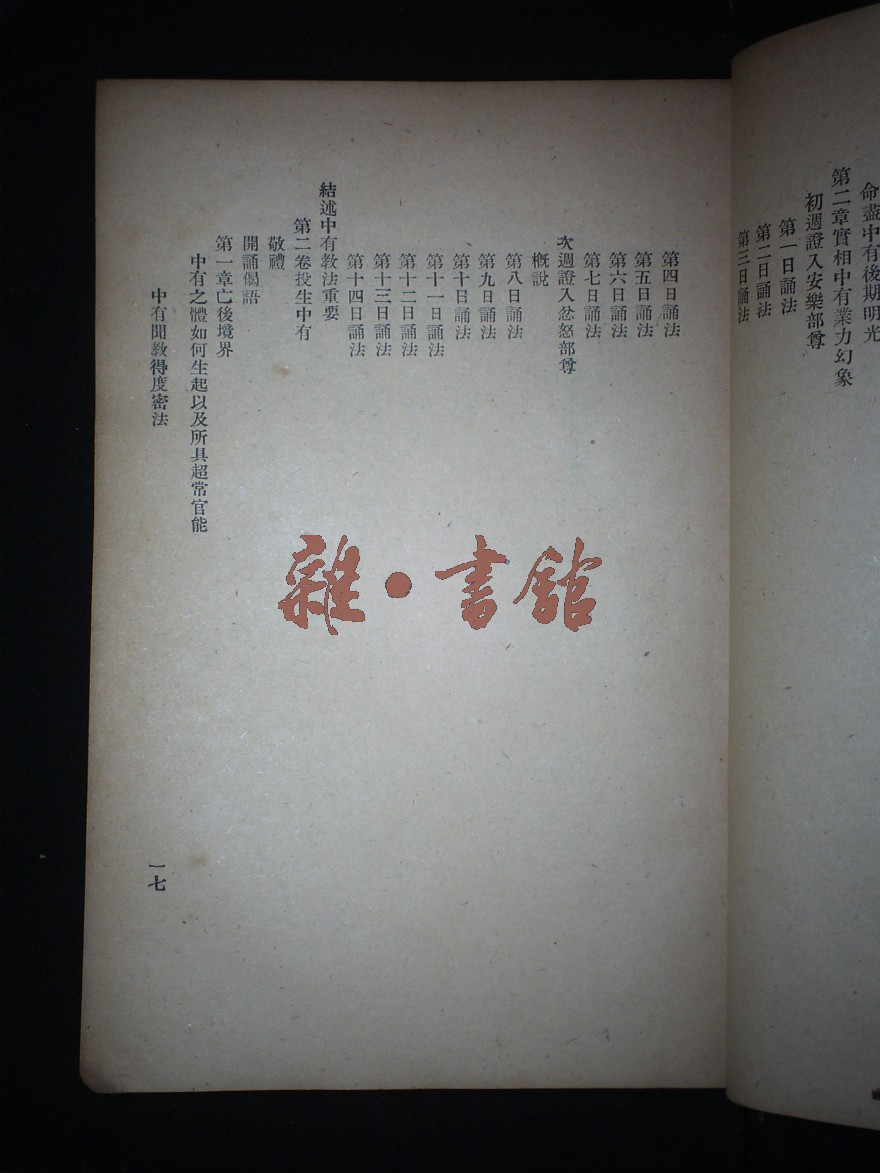 命盡中有後期明光
第二章實相中有業力幻象
初週證入安樂部尊
第一日誦法
第二日誦法
第三日誦法
第四日誦法
第五日誦法
第六日誦法
第七日誦法
次週證入忿怒部尊
概說
第八日誦法
第九日誦法
第十日誦法
第十一日誦法
第十二日誦法
第十三日誦法
第十四日誦法
結述中有教法重要
第二卷投生中有
敬禮
開誦偈語
第一章亡後境界
中有之體如何生起以及所具超常官能
中有聞教得度密法
一七
雜·書館